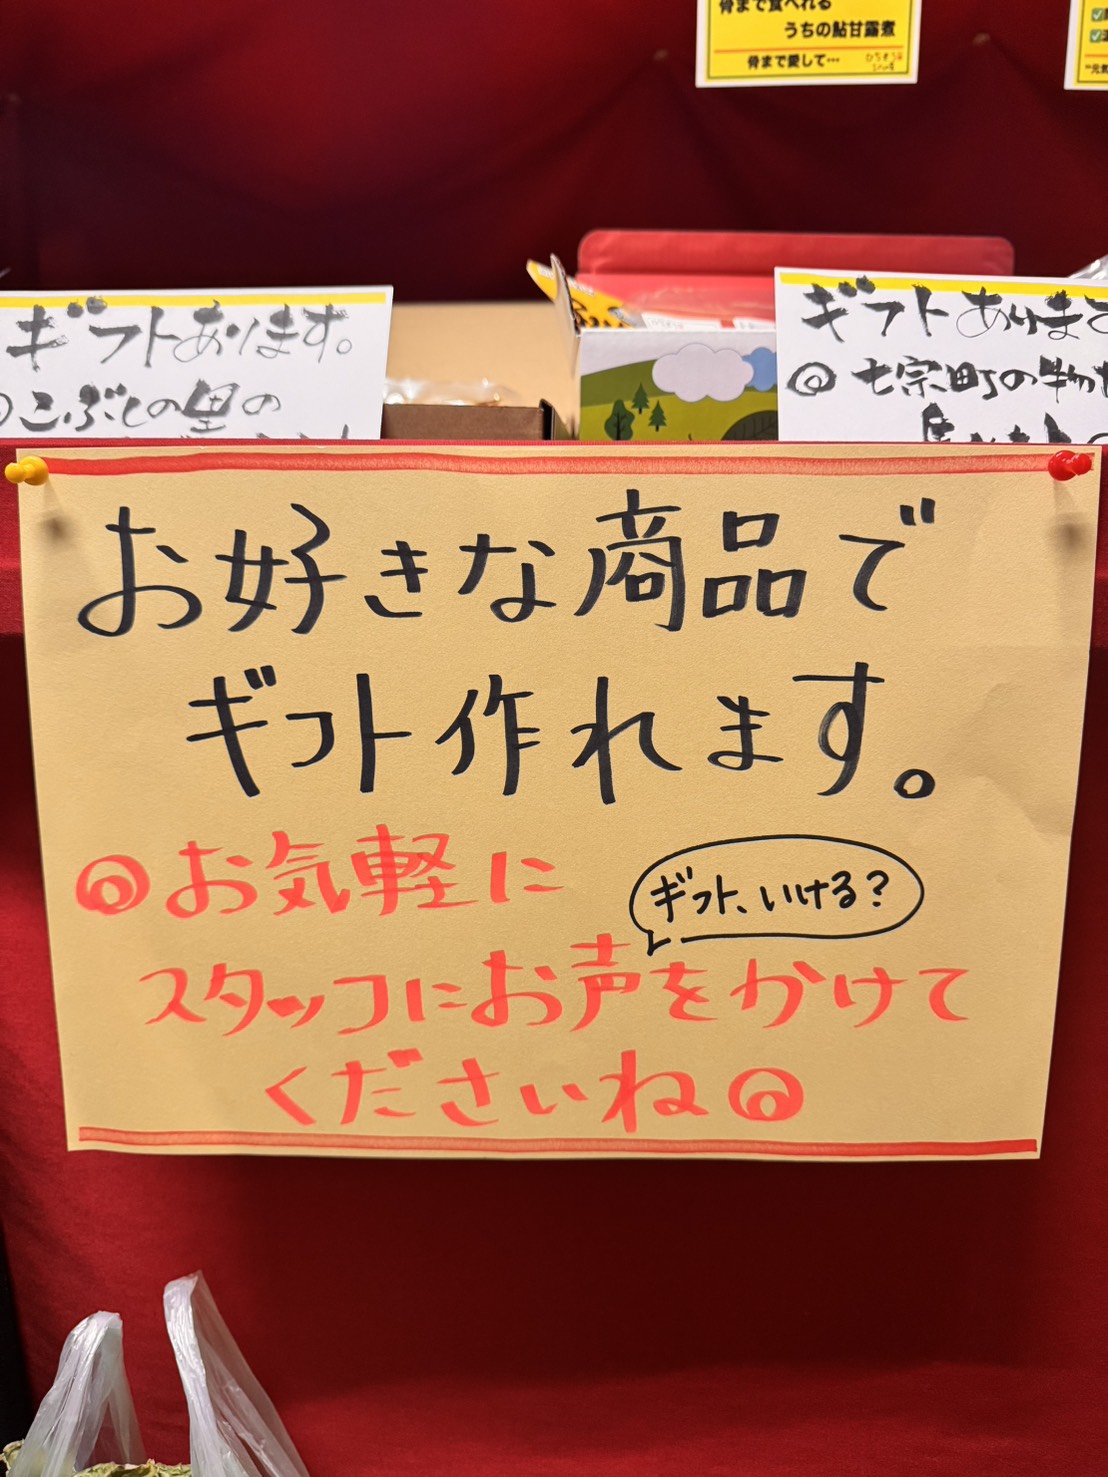 骨まで食べれる
うちの鮎甘露煮
骨まで愛して…
ギフトあります。
◎こぶしの里の
ギフトあります
◎七宗町の物
お好きな商品で
ギフト作れます。
◎お気軽に
ギフト、いける？
スタッフにお声をかけて
くださいね◎